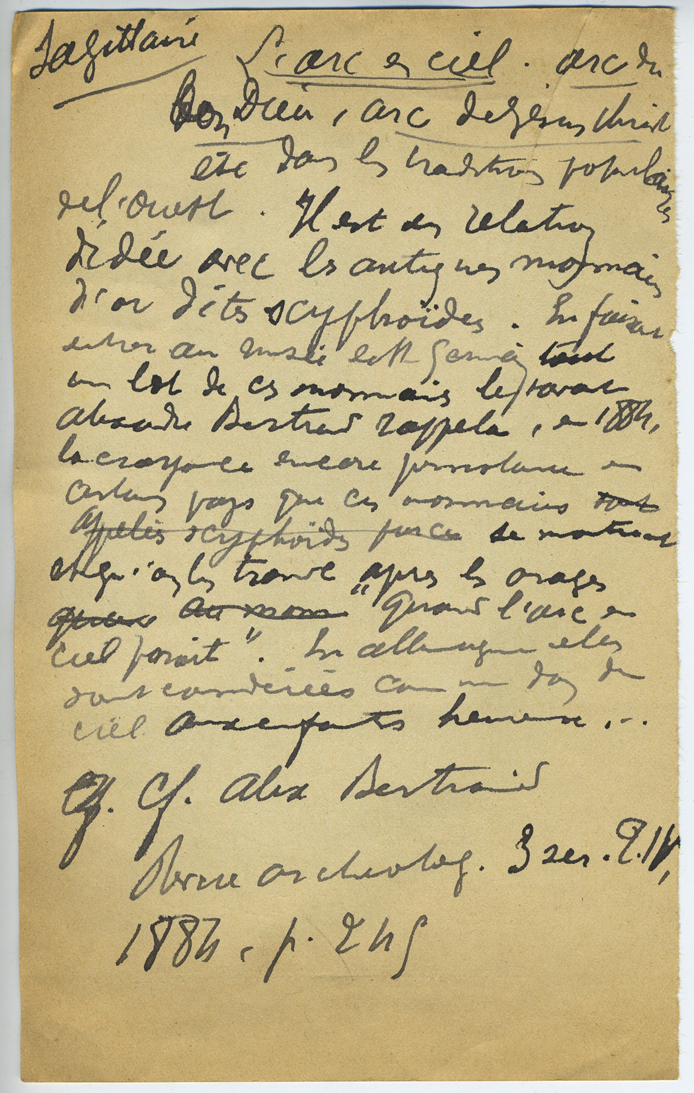 Sagittaire
L'arc en ciel. arc du
bon Dieu, arc de Jésus Christ
etc dans les traditions populaires
de l'ouest. Il est en relation
d'idée avec les antiques monnaies
d'or dites scyphoïdes. En faisant
entrer au musée de St Germain tout
un lot de ces monnaies le savant
Alexandre Bertrand rappela, en 1884,
la croyance encore persistante en
certains pays que ces monnaies sont
appelées scyphoïdes parce se montrent
et qu'on les trouve après les orages
au mom "quand l'arc en
ciel paraît". En Allemagne elles
sont considérées comme un don du
ciel aux enfants heureux...
Cf. Alex Bertrand
Revue archéolog. 3 ser. T. IV,
1884, p. 245